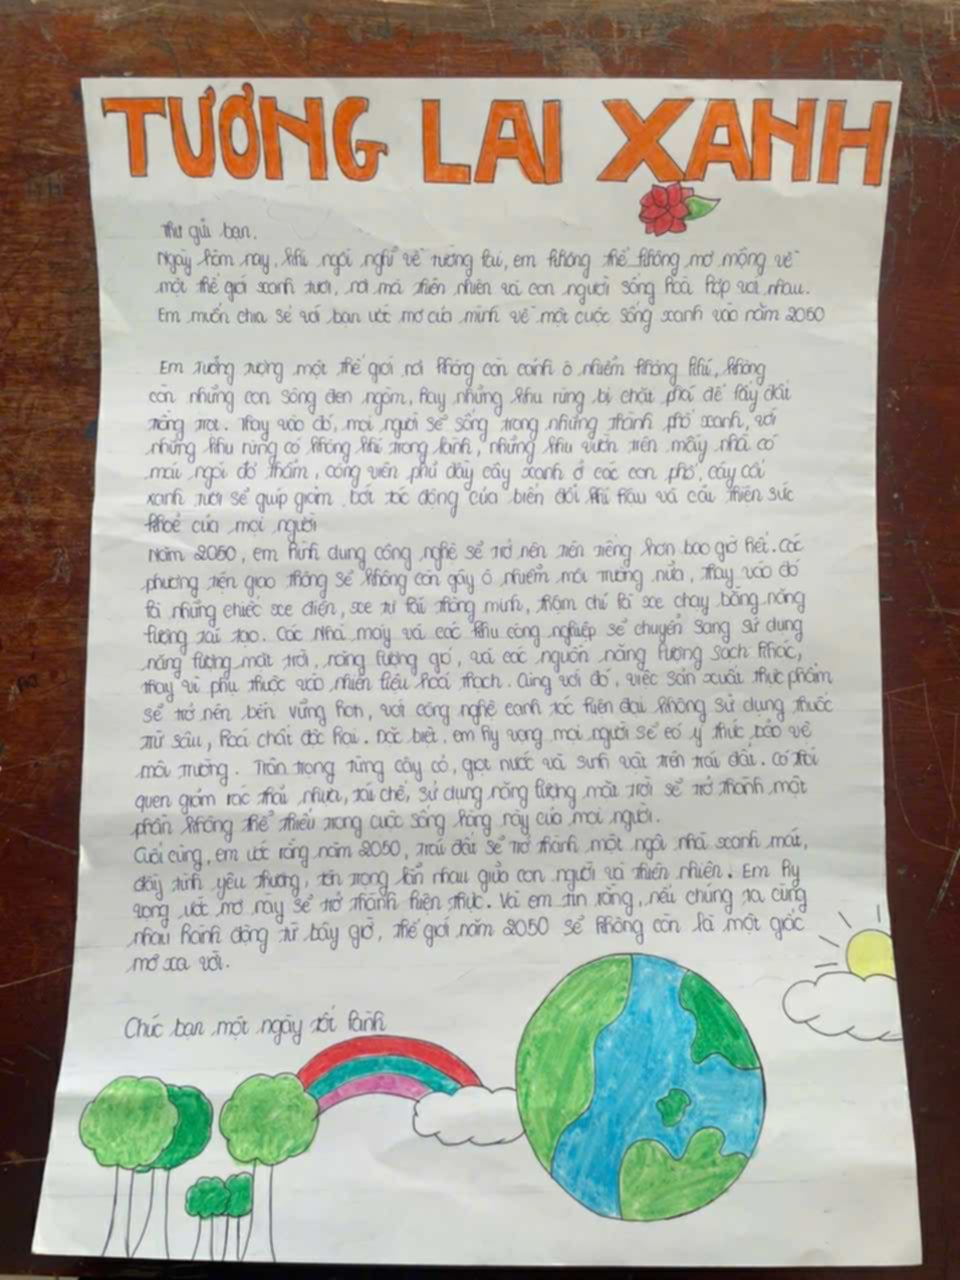 TƯƠNG LAI XANH
Thư gửi bạn.
Ngày hôm nay, khi ngồi nghĩ về tương lai, em không thể không mơ mộng về
một thế giới xanh tươi, nơi mà thiên nhiên và con người sống hoà hợp với nhau.
Em muốn chia sẻ với bạn ước mơ của mình về một cuộc sống xanh vào năm 2050
Em tưởng tượng một thế giới nơi không còn cảnh ô nhiễm không khí, không
còn những con sông đen ngòm, hay những khu rừng bị chặt phá để lấy đất
trồng trọt. Thay vào đó, mọi người sẽ sống trong những thành phố xanh, với
những khu rừng có không khí trong lành, những khu vườn trên mấy nhà có
mái ngói đỏ thẫm, công viên phủ đầy cây xanh ở các con phố, cây cối
xanh tươi sẽ giúp giảm bớt tác động của biến đổi khí hậu và cải thiện sức
khoẻ của mọi người
Năm 2050, em hình dung công nghệ sẽ trở nên tiên tiếng hơn bao giờ hết. Các
phương tiện giao thông sẽ không còn gây ô nhiễm môi trường nữa, thay vào đó
là những chiếc xe điện, xe tự lái thông minh, thậm chí là xe chạy bằng năng
lượng tái tạo. Các nhà máy và các khu công nghiệp sẽ chuyển sang sử dụng
năng lượng mặt trời, năng lượng gió, và các nguồn năng lượng sạch khác,
thay vì phụ thuộc vào nhiên liệu hoá thạch. Cùng với đó, việc sản xuất thực phẩm
sẽ trở nên bền vững hơn, với công nghệ canh tác hiện đại không sử dụng thuốc
trừ sâu, hoá chất độc hại. Đặc biệt, em hy vọng mọi người sẽ có ý thức bảo vệ
môi trường. Trân trọng từng cây cỏ, giọt nước và sinh vật trên trái đất. Có thói
quen giảm rác thải nhựa, tái chế, sử dụng năng lượng mặt trời sẽ trở thành một
phần không thể thiếu trong cuộc sống hàng này của mọi người.
Cuối cùng, em ước rằng năm 2050, trái đất sẽ trở thành một ngôi nhà xanh mát,
đầy tình yêu thương, tôn trọng lẫn nhau giữa con người và thiên nhiên. Em hy
vọng ước mơ này sẽ trở thành hiện thực. Và em tin rằng, nếu chúng ta cùng
nhau hành động từ bây giờ, thế giới năm 2050 sẽ không còn là một giấc
mơ xa vời.
Chúc bạn một ngày tốt lành